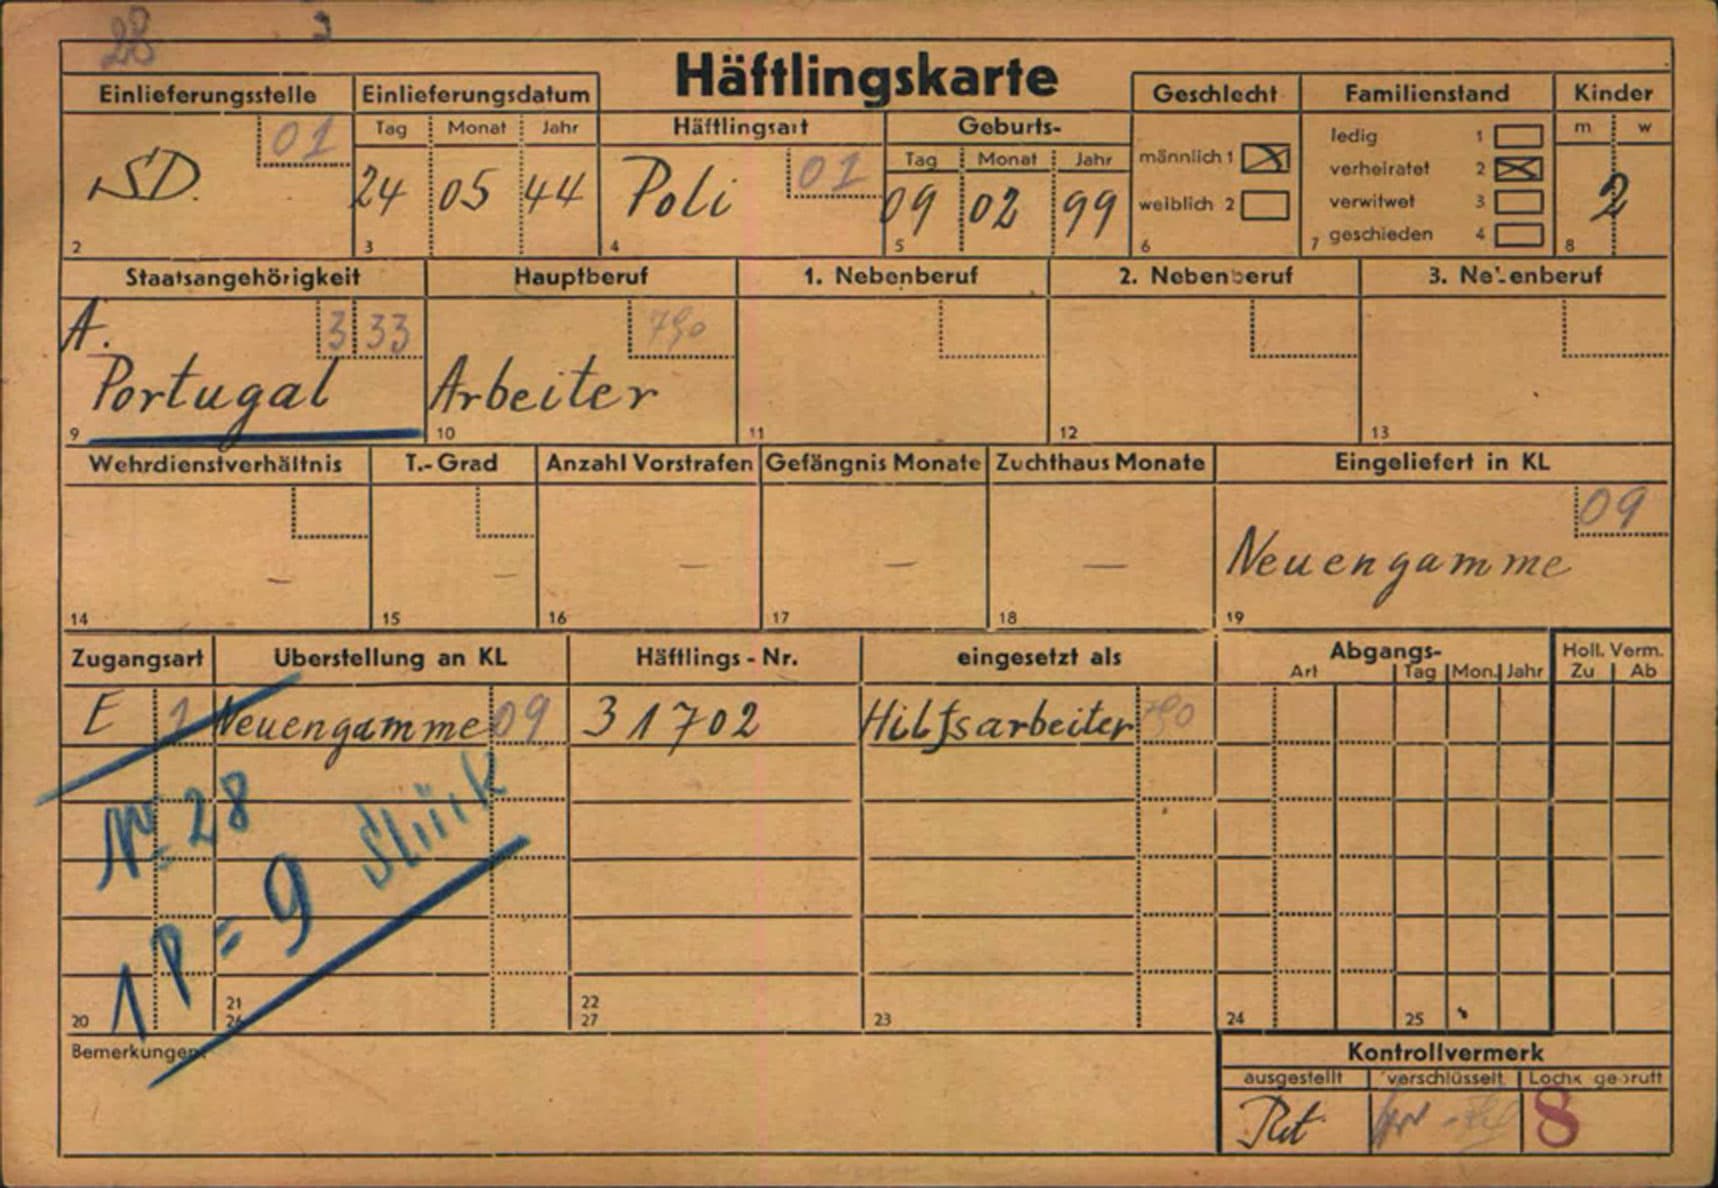 28
Häftlingskarte
Einlieferungsstelle
01
SD.
2
Einlieferungsdatum
Tag Monat Jahr
24 05 44
3
Häftlingsart
01
Poli
4
Geburts-
Tag Monat Jahr
09 02 99
5
Geschlecht
männlich 1
weiblich 2
6
Familienstand
ledig 1
verheiratet 2
verwitwet 3
geschieden 4
7
Kinder
m w
2
8
Staatsangehörigkeit
A. 3 33
Portugal
9
Hauptberuf
Arbeiter
10
1. Nebenberuf
11
2. Nebenberuf
12
3. Nebenberuf
13
Wehrdienstverhältnis
–
14
T.-Grad
–
15
Anzahl Vorstrafen
–
16
Gefängnis Monate
–
17
Zuchthaus Monate
–
18
Eingeliefert in KL
09
Neuengamme
19
Zugangsart Überstellung an KL Häftlings-Nr. eingesetzt als
Abgangs-
Art Tag Mon. Jahr
Holl. Verm.
Zu Ab
E 1 Neuengamme 09 31702 Hilfsarbeiter
Nº 28
1 P = 9 Stück
20 21 26 22 27 23 24 25
Bemerkungen:
Kontrollvermerk
ausgestellt verschlüsselt Lochk geprüft
8